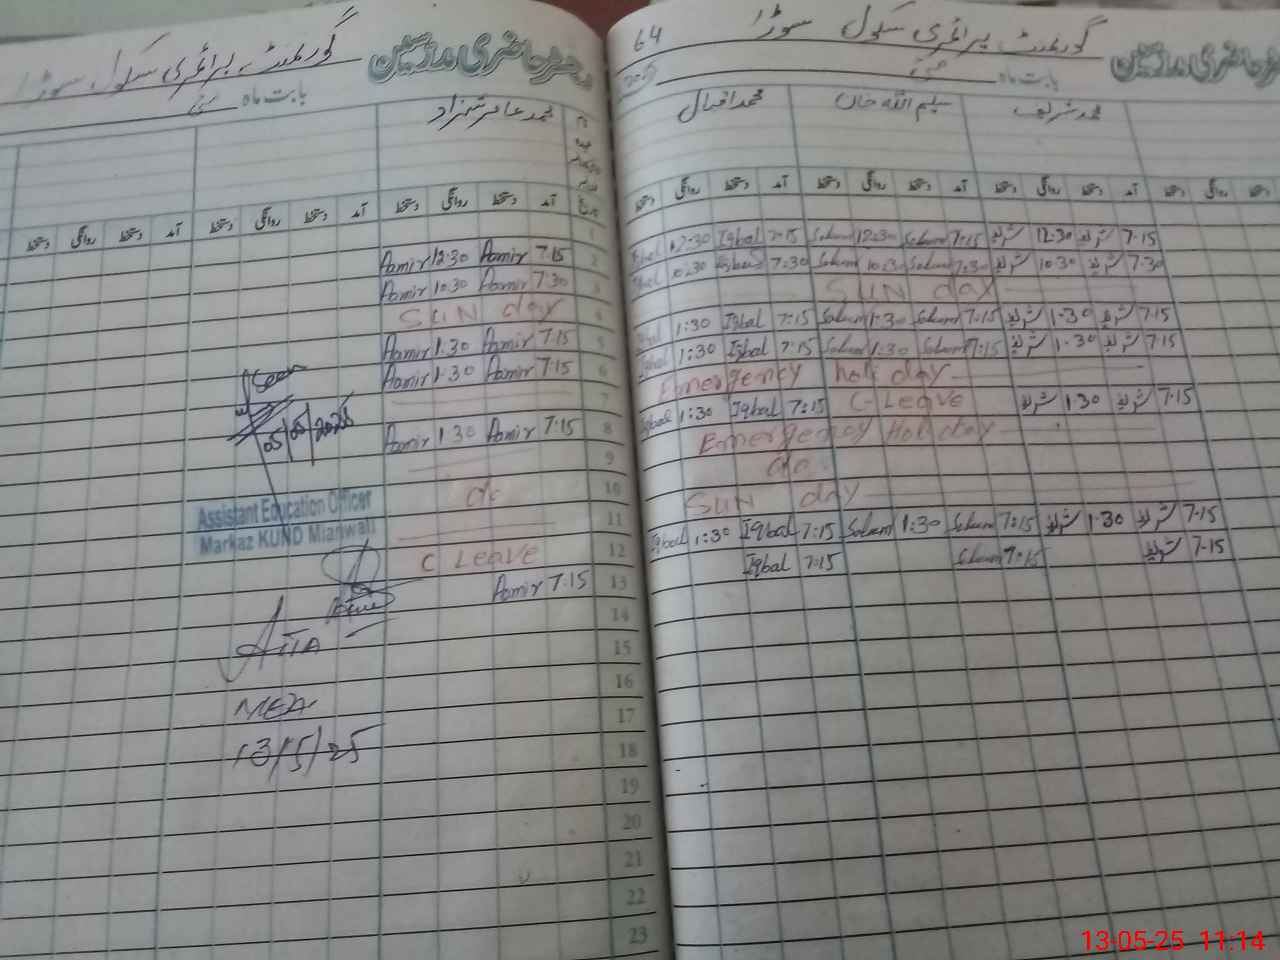 گورنمنٹ پرائمری سکول سوڑا
دفتر حاضری مدرسین
بابت ماہ مئی
محمد عامر شہزاد
آمد دستخط روانگی دستخط آمد دستخط روانگی دستخط آمد دستخط روانگی دستخط
1
Aamir 12:30 Aamir 7.15 2
Aamir 10.30 Aamir 7.30 3
SUN day 4
Aamir 1.30 Aamir 7.15 5
Aamir 1.30 Aamir 7.15 6
7
Aamir 1.30 Aamir 7.15 8
9
do 10
11
C Leave 12
Aamir 7.15 13
14
15
16
17
18
19
20
21
22
23
Seen
05/05/2025
Assistant Education Officer
Markaz KUND Mianwali
MEA
13/5/25
64
گورنمنٹ پرائمری سکول سوڑا
دفتر حاضری مدرسین
بابت ماہ مئی
2025
محمد اقبال سلیم اللہ خان محمد شریف
دستخط آمد دستخط روانگی دستخط آمد دستخط روانگی دستخط آمد دستخط روانگی دستخط
12-30 Iqbal 7-15 Saleem 12:30 Saleem 7:15 شریف 12.30 شریف 7-15
10:30 Iqbal 7:30 Saleem 10:30 Saleem 7:30 شریف 10.30 شریف 7-30
SUN day
Iqbal 1:30 Iqbal 7:15 Saleem 1:30 Saleem 7:15 شریف 1.30 شریف 7.15
Iqbal 1:30 Iqbal 7:15 Saleem 1:30 Saleem 7:15 شریف 1.30 شریف 7.15
Emergency holiday
Iqbal 1:30 Iqbal 7:15 C-Leave شریف 1.30 شریف 7.15
Emergency Holiday
do
SUN day
Iqbal 1:30 Iqbal 7:15 Saleem 1:30 Saleem 7:15 شریف 1-30 شریف 7-15
Iqbal 7:15 Saleem 7:15 شریف 7-15
13-05-25 11:14